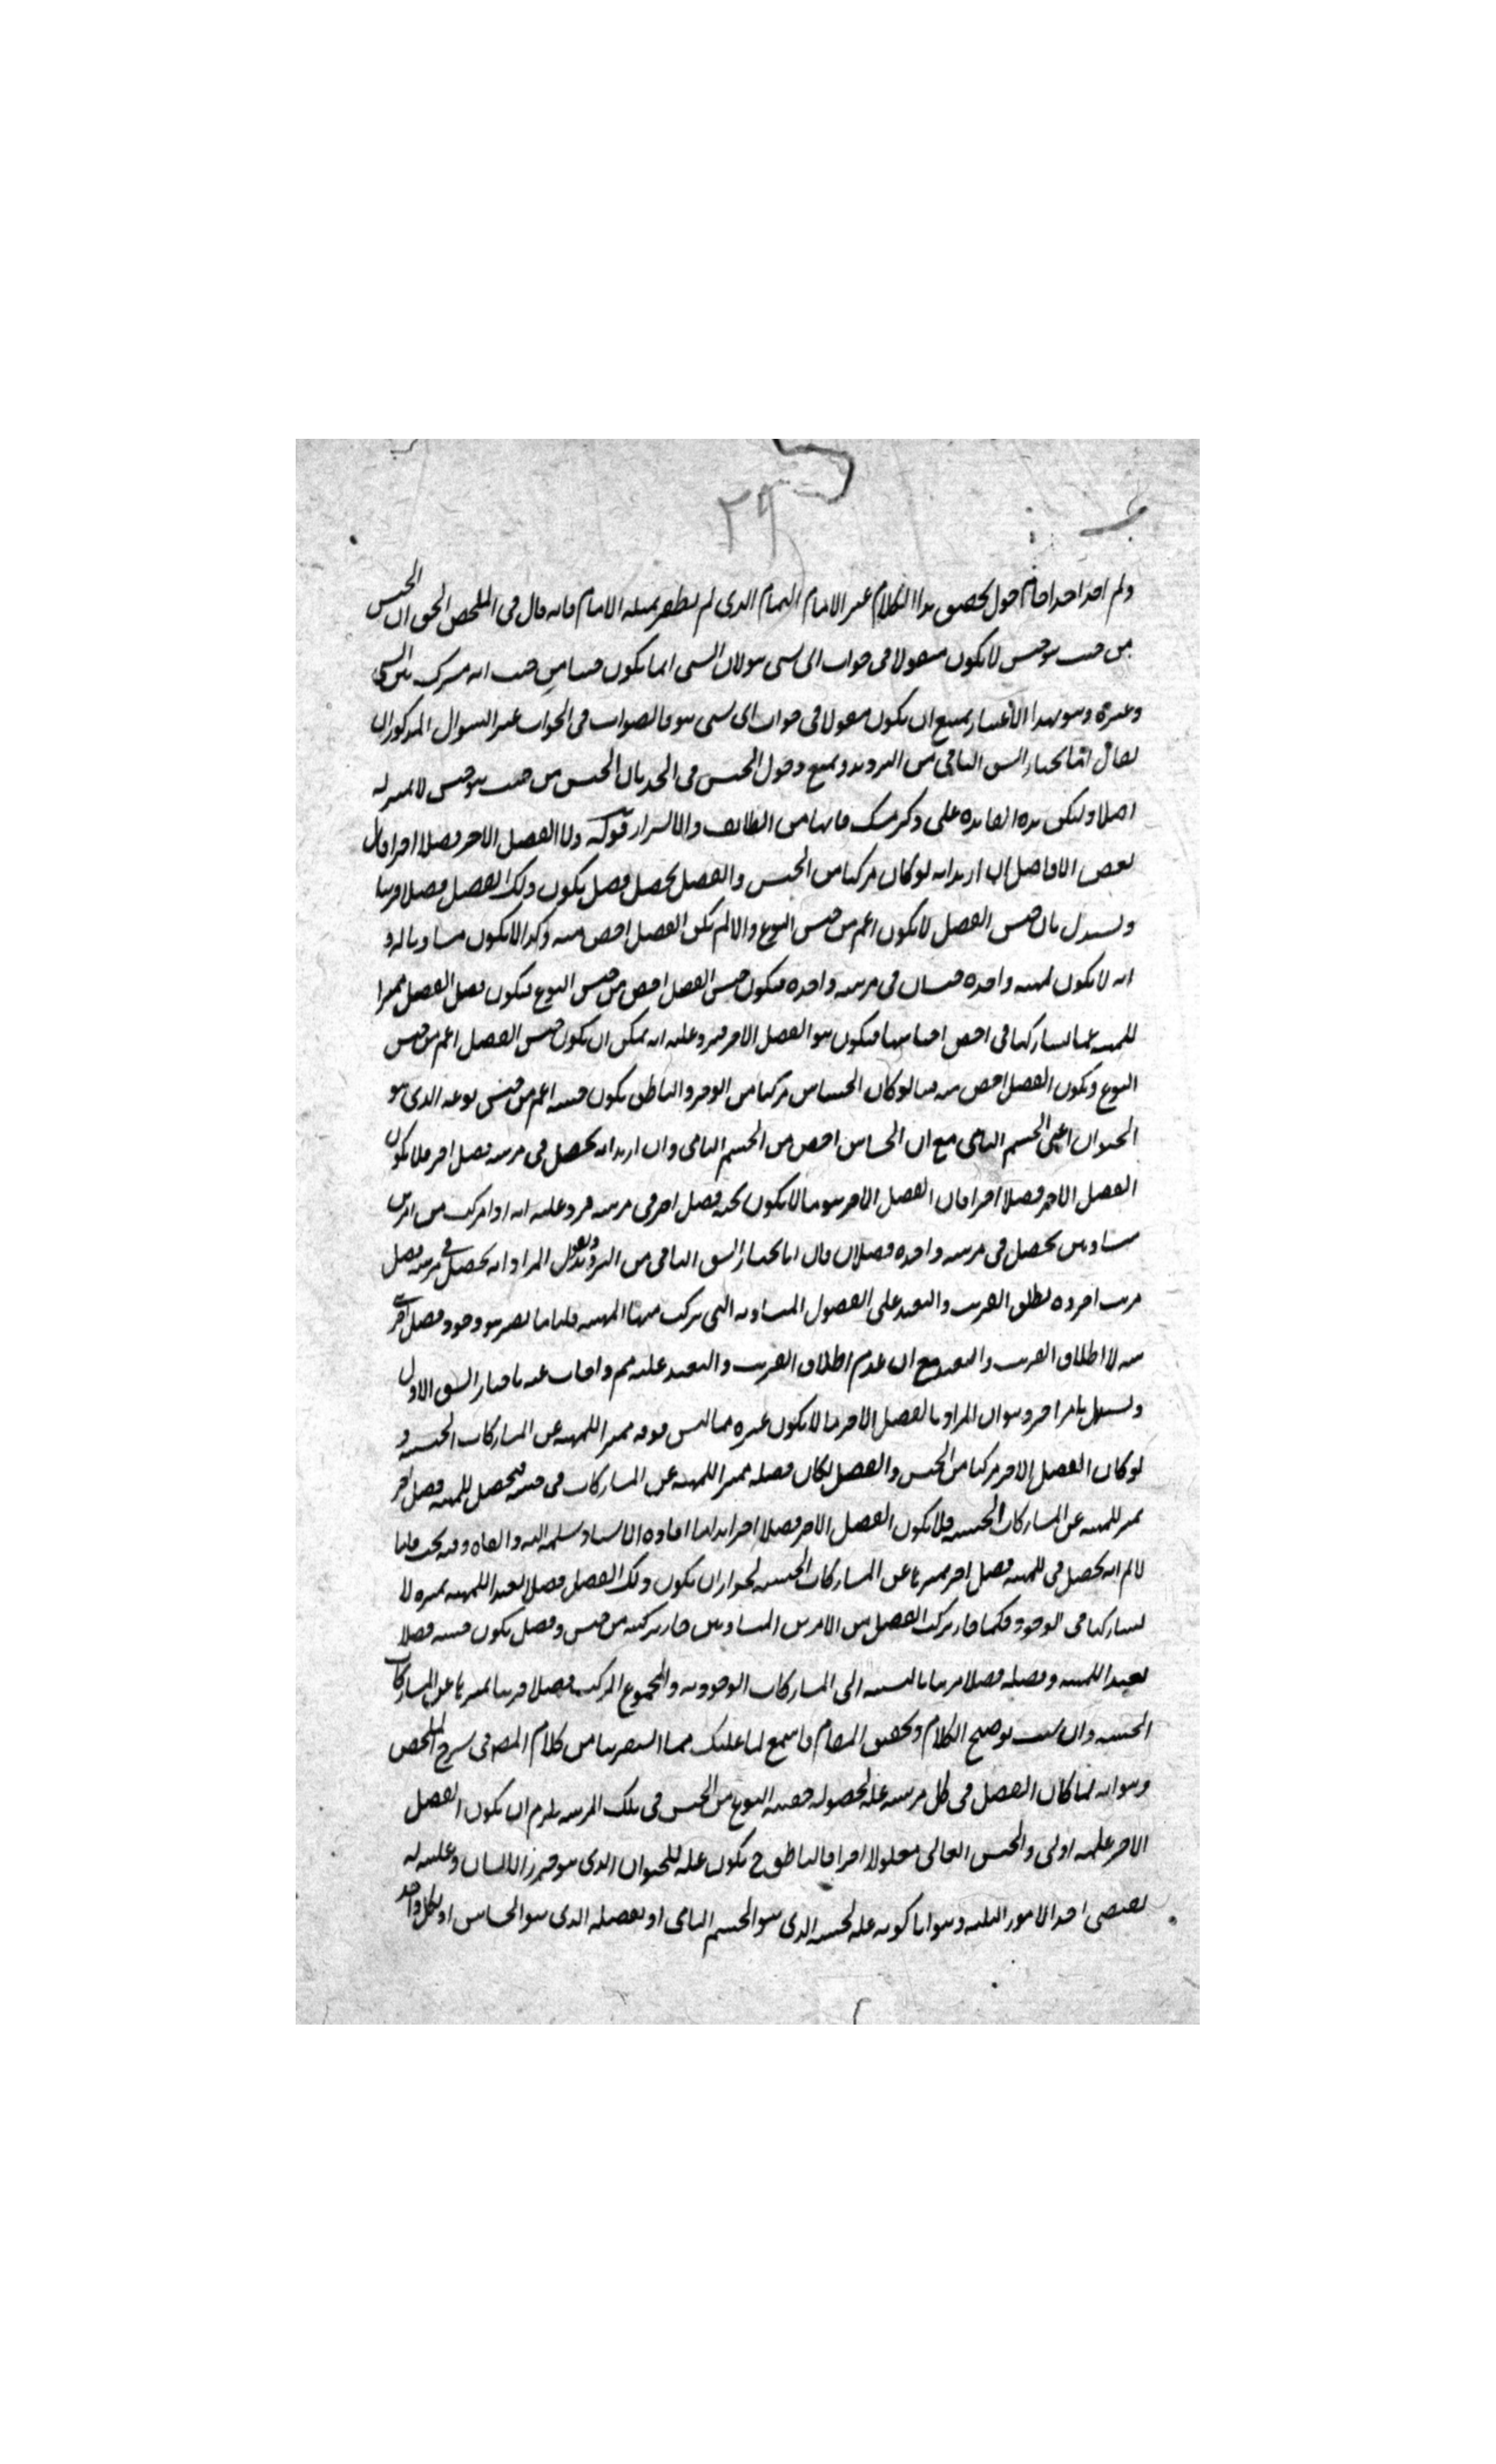 ٢٩
ولم اجد احدا حام حول تحقيق هذا الكلام غير الامام الهمام الذى لم يظفر بمثله الايام فانه قال فى الملخص الحق ان الجنس
من حيث هو جنس لا يكون مقولا فى جواب اى شى هو لان الشى انما يكون جنسا من حيث انه مشترك بين الشى
وغيره وهو بهذا الاعتبار يمتنع ان يكون مقولا فى جواب اى شى هو فالصواب فى الجواب عن السوال المذكور ان
يقال انا نختار الشق الثانى من الترديد ونمنع دخول الجنس فى الحد بان الجنس من حيث هو جنس لا تميز له
اصلا وليكن هذه الفايدة على ذكر منك فانها من اللطايف والاسرار قوله ولا الفصل الاخير فصلا اخيرا قال
بعض الافاضل ان اريد انه لو كان مركبا من الجنس والفصل يحصل فصل يكون ذلك الفصل فصلا قريبا
ويستدل بان جنس الفصل لا يكون اعم من جنس النوع والا لم يكن الفصل اخص منه وكذا لا يكون مساويا له و
انه لا يكون لمهية واحدة جنسان فى مرتبة واحدة فيكون جنس الفصل اخص من جنس النوع فيكون فصل الفصل مميزا
للمهية عما يشاركها فى اخص اجناسها فيكون هو الفصل الاخير فيرد عليه انه يمكن ان يكون جنس الفصل اعم من جنس
النوع ويكون الفصل اخص منه كما لو كان الحساس مركبا من الجوهر والناطق يكون جنسه اعم من جنس نوعه الذى هو
الحيوان اعنى الجسم النامى مع ان الحساس اخص من الجسم النامى وان اريد انه يحصل فى مرتبته فصل اخر فلا يكون
الفصل الاخير فصلا اخيرا فان الفصل الاخير هو ما لا يكون تحته فصل اخر فى مرتبته فيرد عليه انه اذا تركب من امرين
متساويين يحصل فى مرتبة واحدة فصلان فان انا نختار الشق الثانى من الترديد ونقول المراد انه يحصل فى مرتبته فصل
قريب اخر وه يطلق القريب والبعيد على الفصول المتساوية التى تركب منها المهية قلنا ما يضر هو وجود فصل اخر فى
مرتبته لا اطلاق القريب والبعيد مع ان عدم اطلاق القريب والبعيد عليه مم واجاب عنه باختيار الشق الاول
ويستدل بامر اخر وهو ان المراد بالفصل الاخير ما لا يكون غيره مما ليس فوقه مميزا للمهية عن المشاركات الجنسية و
لو كان الفصل الاخير مركبا من الجنس والفصل لكان فصله مميزا للمهية عن المشاركات فى جنسه فيحصل للمهية فصل اخر
مميز للمهية عن المشاركات الجنسية فلا يكون الفصل الاخير فصلا اخيرا هذا ما افاده الاستاد سلمه الله وابقاه وفيه بحث فانا
لا نم انه يحصل فى المهية فصل اخر مميزها عن المشاركات الجنسية لجواز ان يكون ذلك الفصل فصلا بعيدا للمهية تميزه لا
يشاركها فى الوجود فكما جاز تركب الفصل من الامرين المتساويين جاز تركبه من جنس وفصل يكون جنسه فصلا
بعيدا للمهية وفصله فصلا قريبا بالنسبة الى المشاركات الوجودية والمجموع المركب فصلا قريبا مميزها عن المشاركات
الجنسية وان شئت توضيح الكلام وتحقيق المقام فاسمع لما عليك مما استبصرنا من كلام المصه فى شرح الملخص
وهو انه لما كان الفصل فى كل مرتبة علة لحصول حصة النوع من الجنس فى تلك المرتبة يلزم ان يكون الفصل
الاخير علة اولى والجنس العالى معلولا اخيرا فالناطق ح يكون علة للحيوان الذى هو جزء الانسان وعليته له
يقتضى احد الامور الثلثة وهو اما كونه علة لجنسه الذى هو الجسم النامى او لفصله الذى هو الحساس او لكل واحد